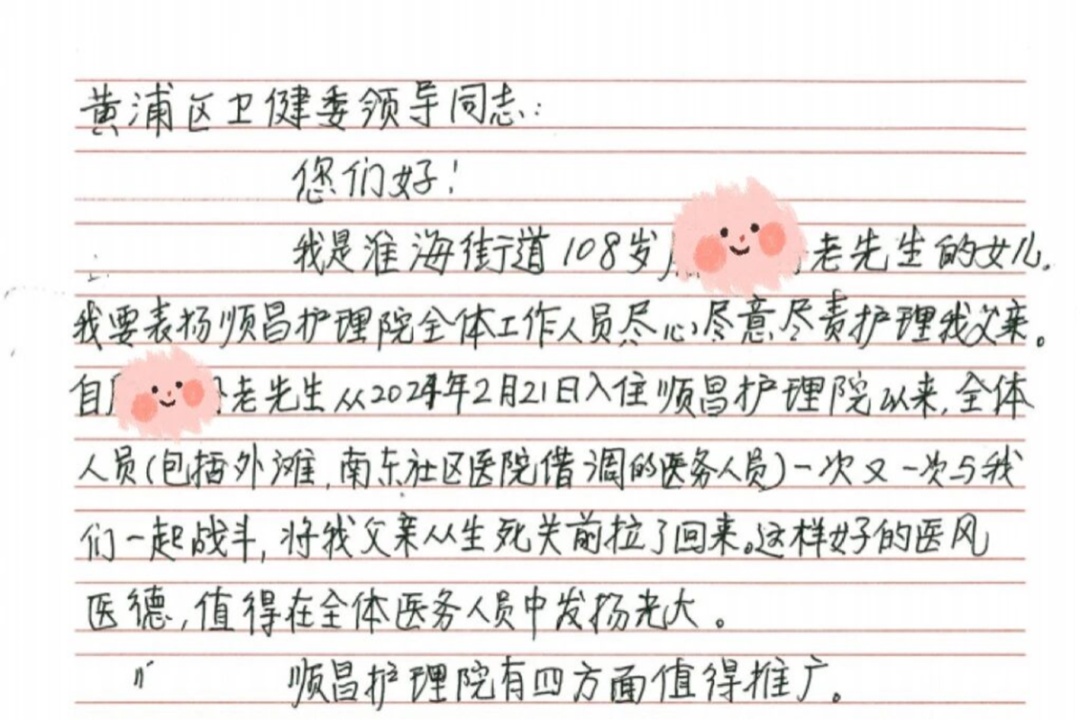 黄浦区卫健委领导同志:
您们好!
我是淮海街道108岁 老先生的女儿.
我要表扬顺昌护理院全体工作人员尽心尽意尽责护理我父亲。
自 老先生从2024年2月21日入住顺昌护理院以来,全体
人员(包括外滩,南东社区医院借调的医务人员)一次又一次与我
们一起战斗,将我父亲从生死关前拉了回来。这样好的医风
医德,值得在全体医务人员中发扬光大。
顺昌护理院有四方面值得推广。